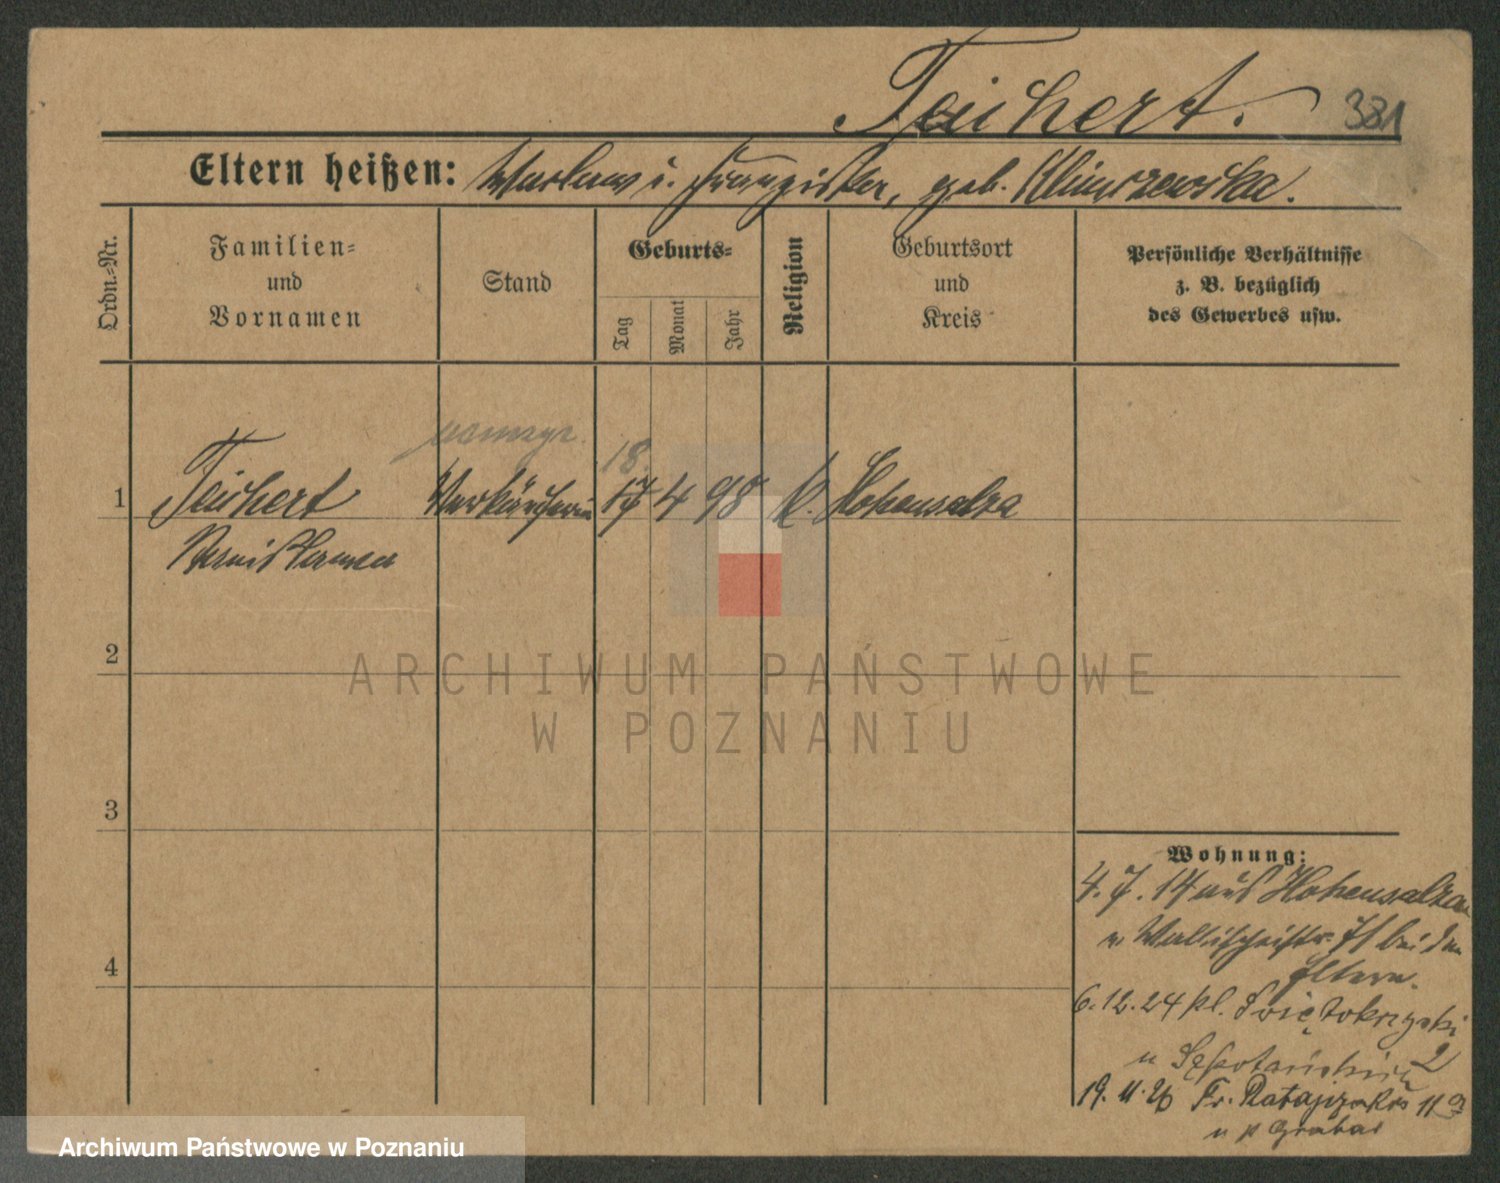 Teichert.
381
Eltern heißen: Waclaw u. Franziska, geb. Klimczewska.
Ordn.-Nr.
Familien-
und
Vornamen
Stand
Geburts-
Tag
Monat
Jahr
Religion
Geburtsort
und
Kreis
Persönliche Verhältnisse
z. B. bezüglich
des Gewerbes usw.
18.
1 Teichert Verkäuferin 17 4 98 k. Hohensalza
Stanislawa
2
3
4
Wohnung:
4. 7. 14 aus Hohensalza
n Wallischeistr. 71 bei den
Eltern.
6.12.24 pl. Świętokrzyski 2
u
19.11.26 Fr. Ratajczaka 11a
u p Grabas
ARCHIWUM PAŃSTWOWE
W POZNANIU
Archiwum Państwowe w Poznaniu